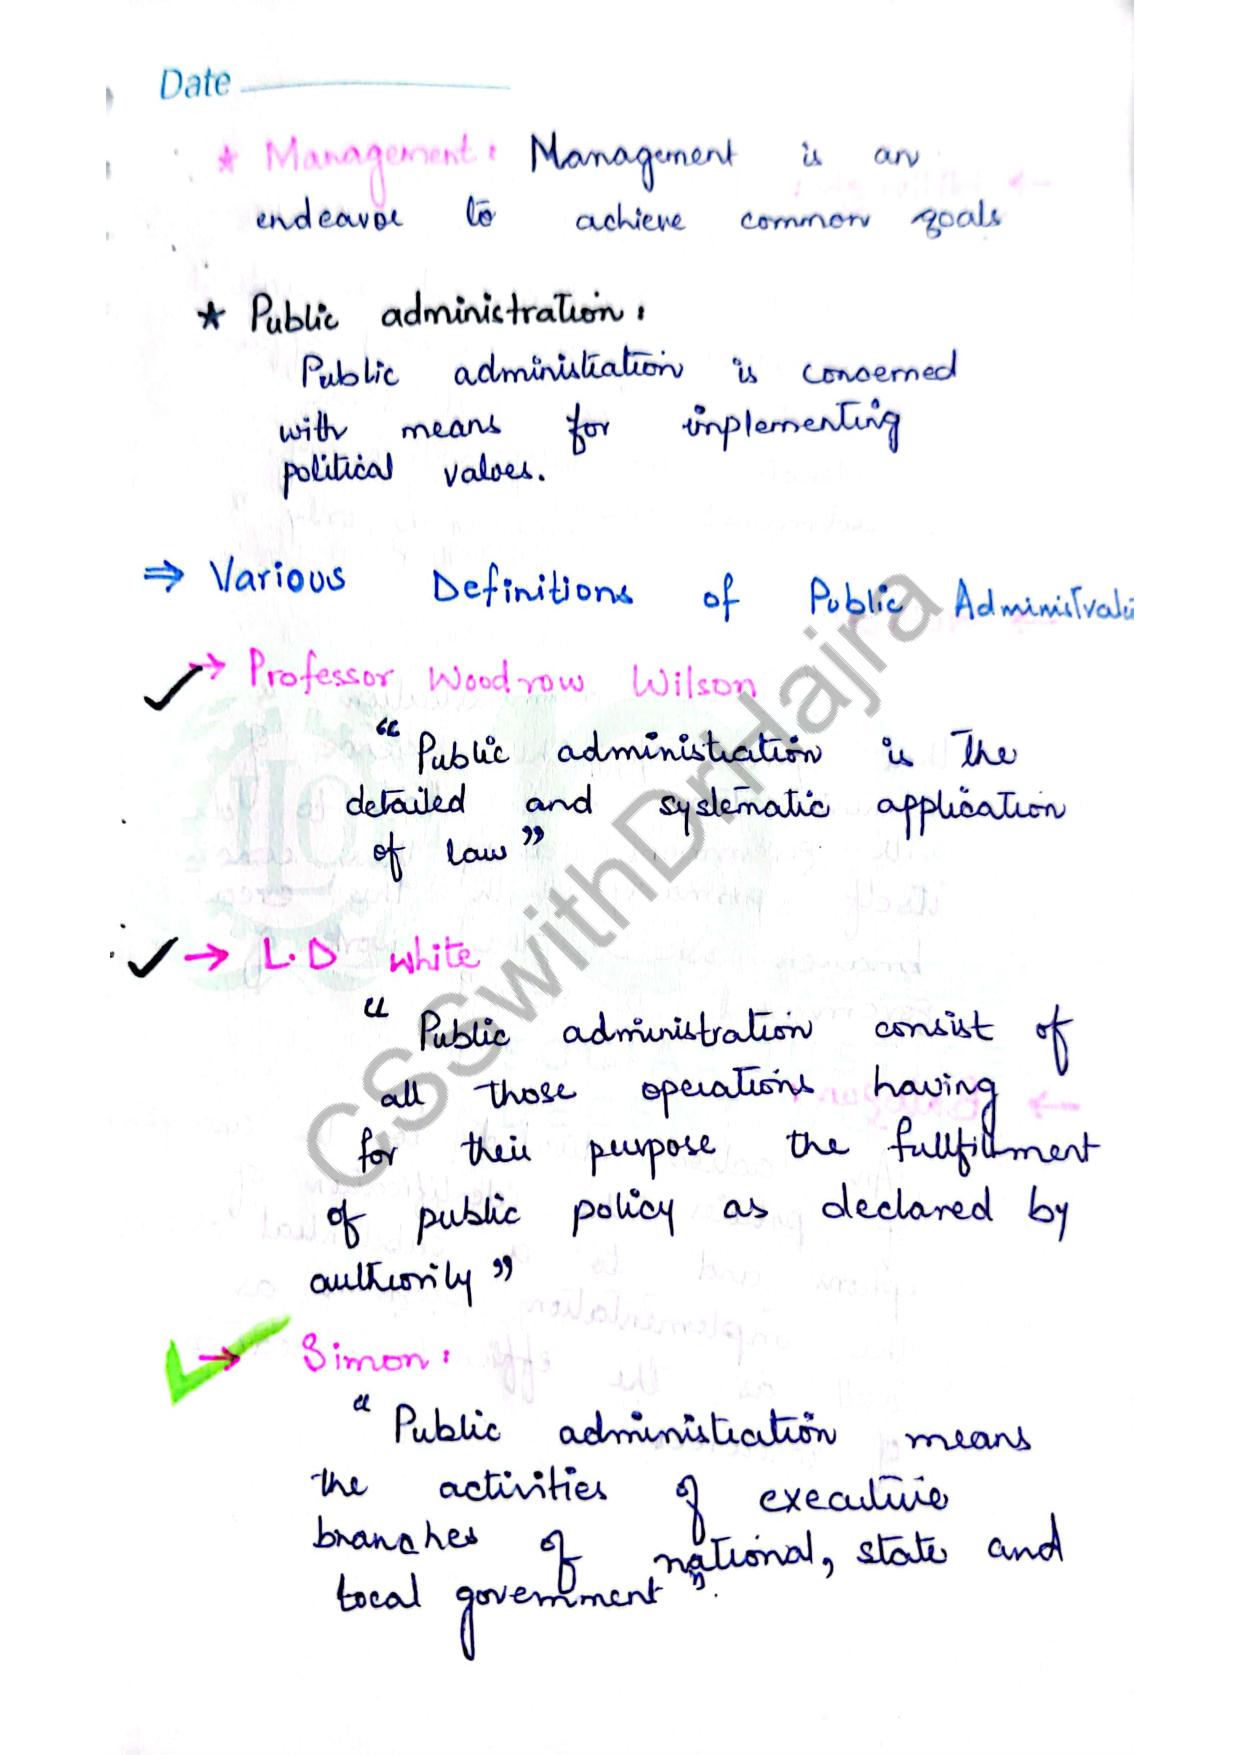 Date
★ Management: Management is an
endeavor to achieve common goals
★ Public administration:
Public administration is concerned
with means for implementing
political values.
⇒ Various Definitions of Public Administrati
→ Professor Woodrow Wilson
“Public administration is the
detailed and systematic application
of law”
→ L.D White
“Public administration consist of
all those operations having
for their purpose the fullfillment
of public policy as declared by
authority”
→ Simon:
“Public administration means
the activities of executive
branches of national, state and
local government”.
CSSwithDrHajra